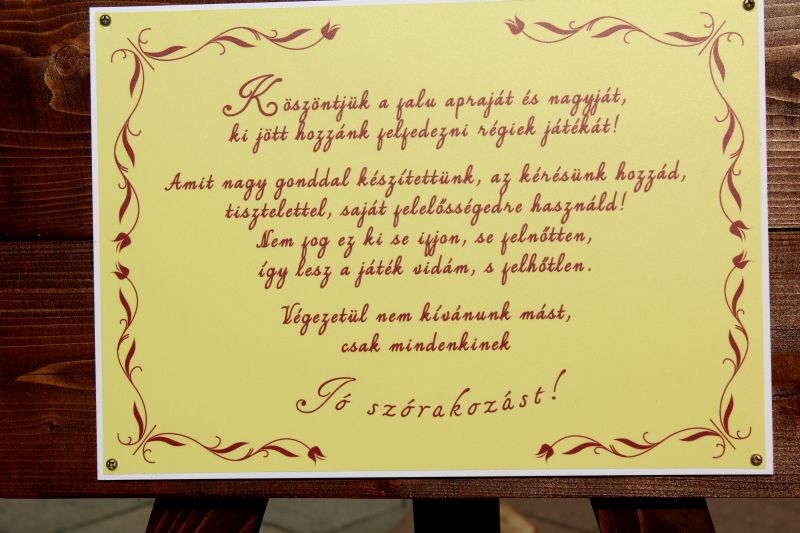 Köszöntjük a falu apraját és nagyját,
ki jött hozzánk felfedezni régiek játékát!
Amit nagy gonddal készítettünk, az kérésünk hozzád,
tisztelettel, saját felelősségedre használd!
Nem fog ez ki se ifjon, se felnőtten,
így lesz a játék vidám, s felhőtlen.
Végezetül nem kívánunk mást,
csak mindenkinek
Jó szórakozást!